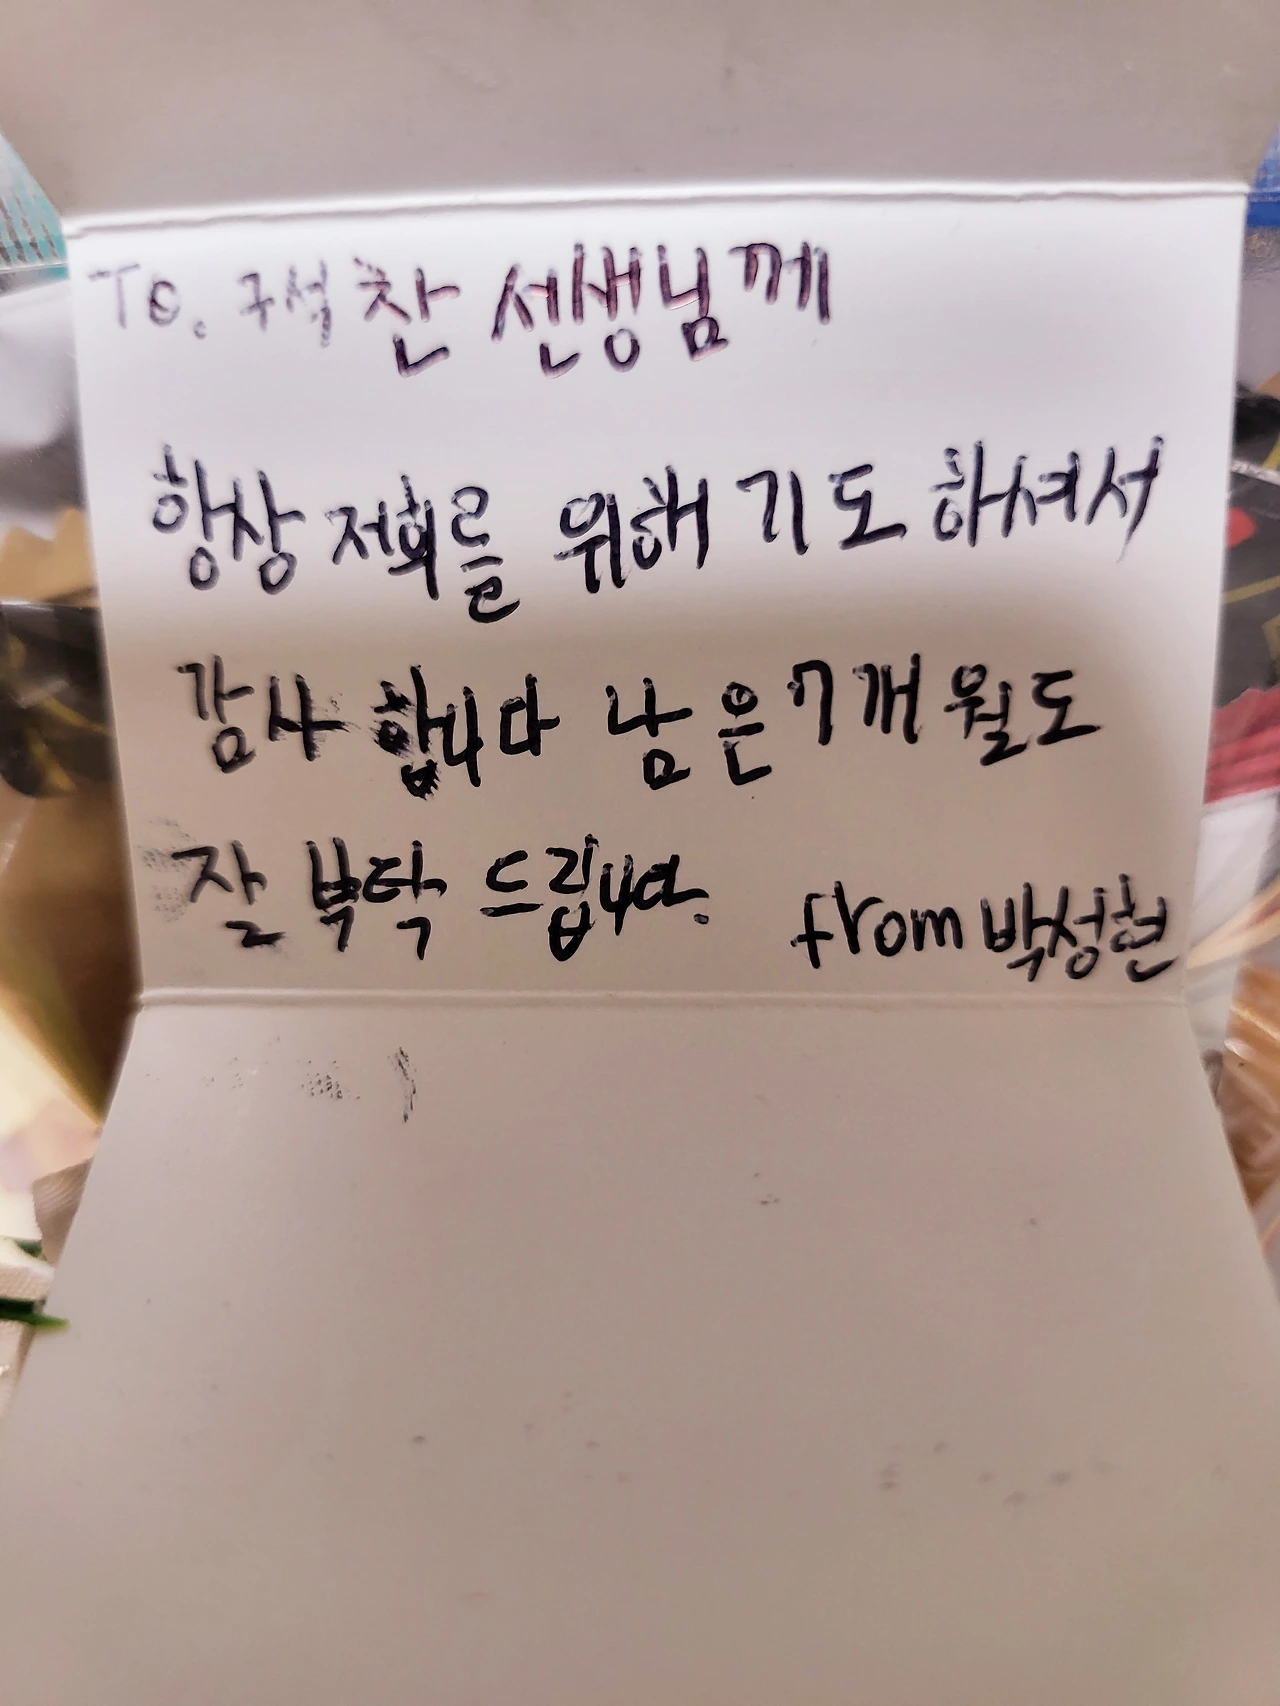 To. 구석찬 선생님께
항상 저희를 위해 기도 하셔서
감사 합니다 남은 7개월도
잘 부탁 드립니다.
from 박성현